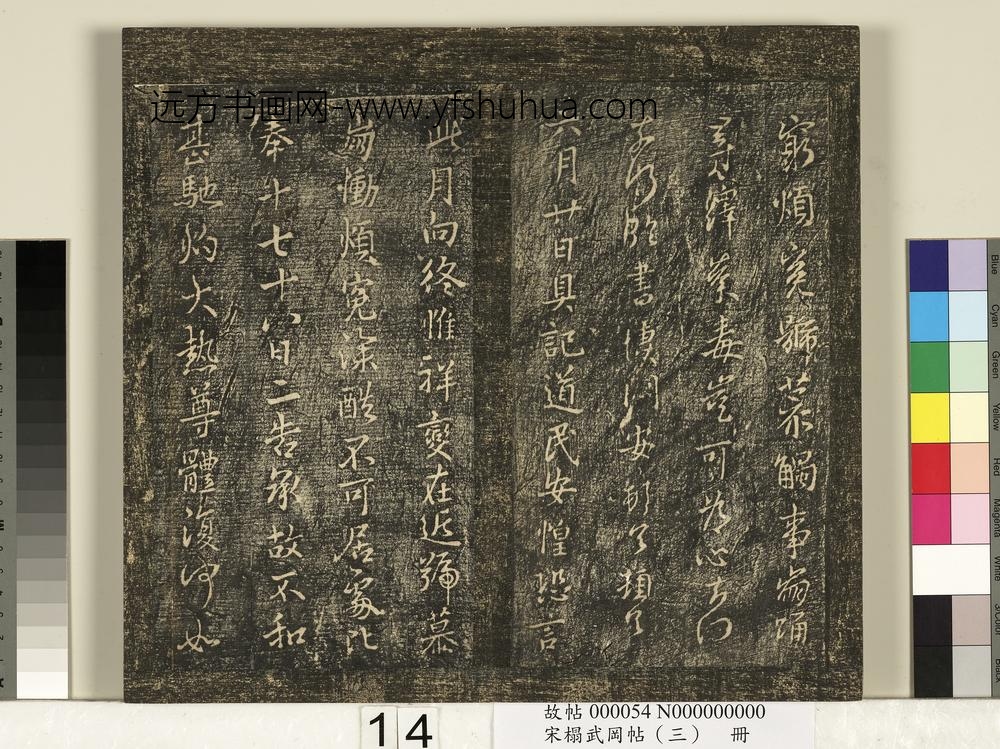 窮煩冤號慕觸事崩踊
尋繹荼毒豈可為心奈何
奈何臨書愴悶安頓首頓首
六月廿日具記道民安惶恐言
此月向終惟祥變在近號慕
崩慟煩冤深酷不可居處比
奉十七十八日二告承故不和
甚馳灼大熱尊體復何如
远方书画网-www.yfshuhua.com
14
故帖 000054 N000000000
宋榻武岡帖（三） 冊
Blue
Cyan
Green
Yellow
Red
Magenta
White
3/Color
Black